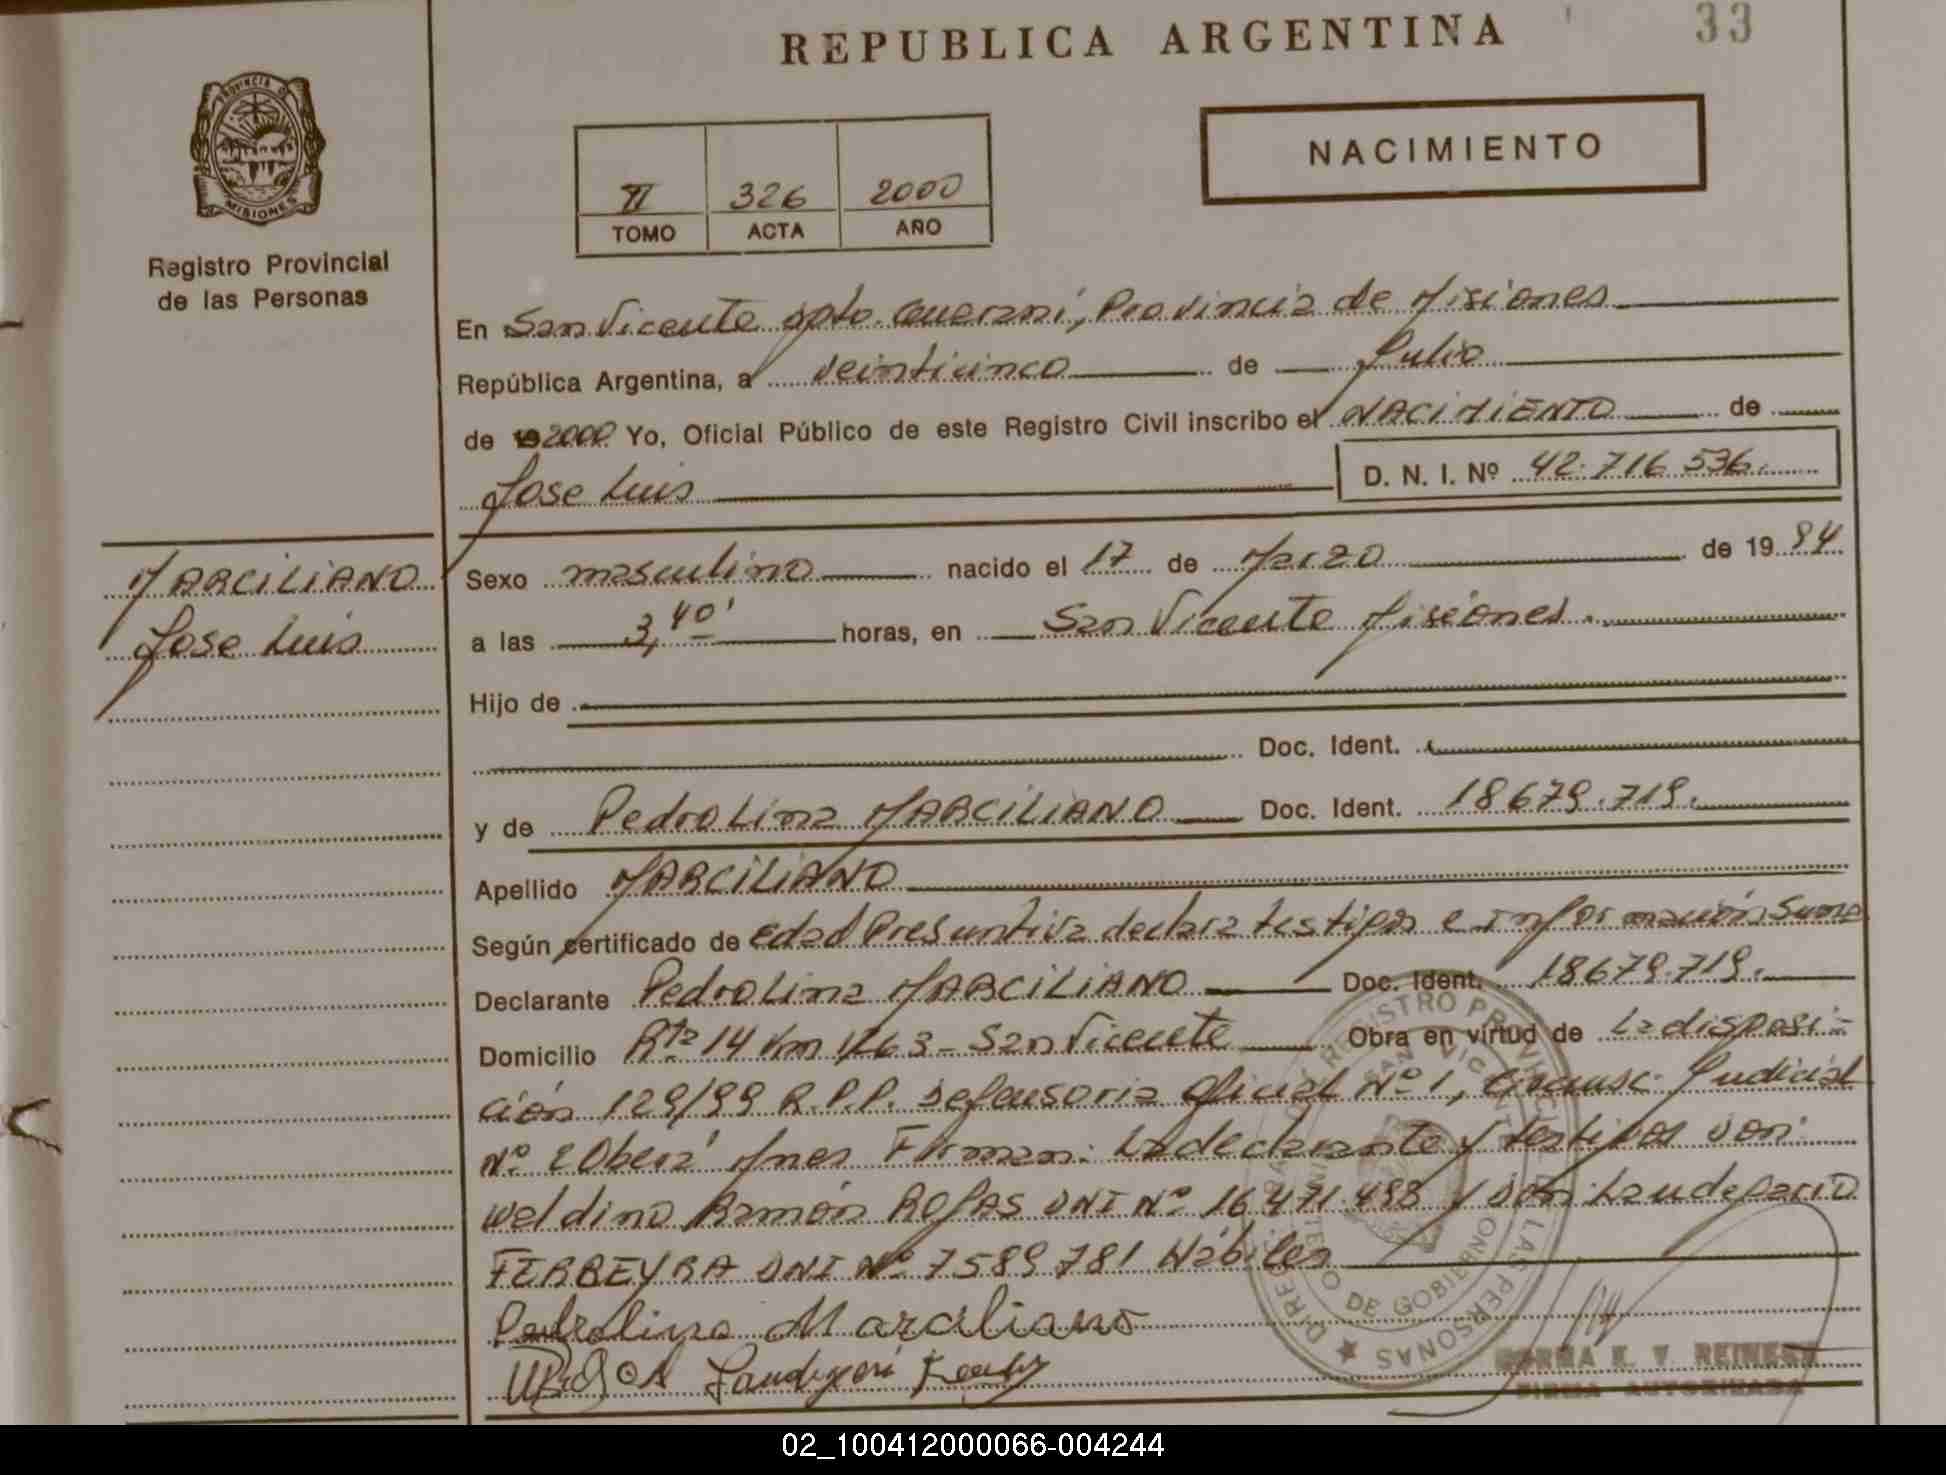 REPUBLICA ARGENTINA
33
PROVINCIA D
MISIONES
Registro Provincial
de las Personas
II 326 2000
TOMO ACTA AÑO
NACIMIENTO
En San Vicente dpto. Guarani, Provincia de Misiones
República Argentina, a veinticinco de Julio
de 19 2000 Yo, Oficial Público de este Registro Civil inscribo el NACIMIENTO de
Jose Luis D. N. I. Nº 42.716.536.
MARCILIANO
Jose Luis
Sexo masculino nacido el 17 de Marzo de 19 84
a las 3,40' horas, en San Vicente Misiones.
Hijo de
Doc. Ident.
y de Pedrolina MARCILIANO Doc. Ident. 18679.719.
Apellido MARCILIANO
Según certificado de edad Presuntiva declara testigos e información Suma
Declarante Pedrolina MARCILIANO Doc. Ident. 18679.719.
Domicilio Rta 14 Km 1263 - San Vicente Obra en virtud de La disposi-
ción 129/99 R.P.P. Defensoria Oficial Nº 1, Circunsc. Judicial
Nº 2 Obera Mnes Firman: La declarante y testigos Don:
Weldino Ramón ROJAS DNI Nº 16.471.498 y Don: Laudegario
FERREYRA DNI Nº 7589781 Hábiles
Pedrolina Marciliano
REGISTRO PROVINCIAL DE LAS PERSONAS
SAN VICENTE
MINISTERIO DE GOBIERNO
NORMA E. V.
FIRMA AUTORIZADA
02_100412000066-004244